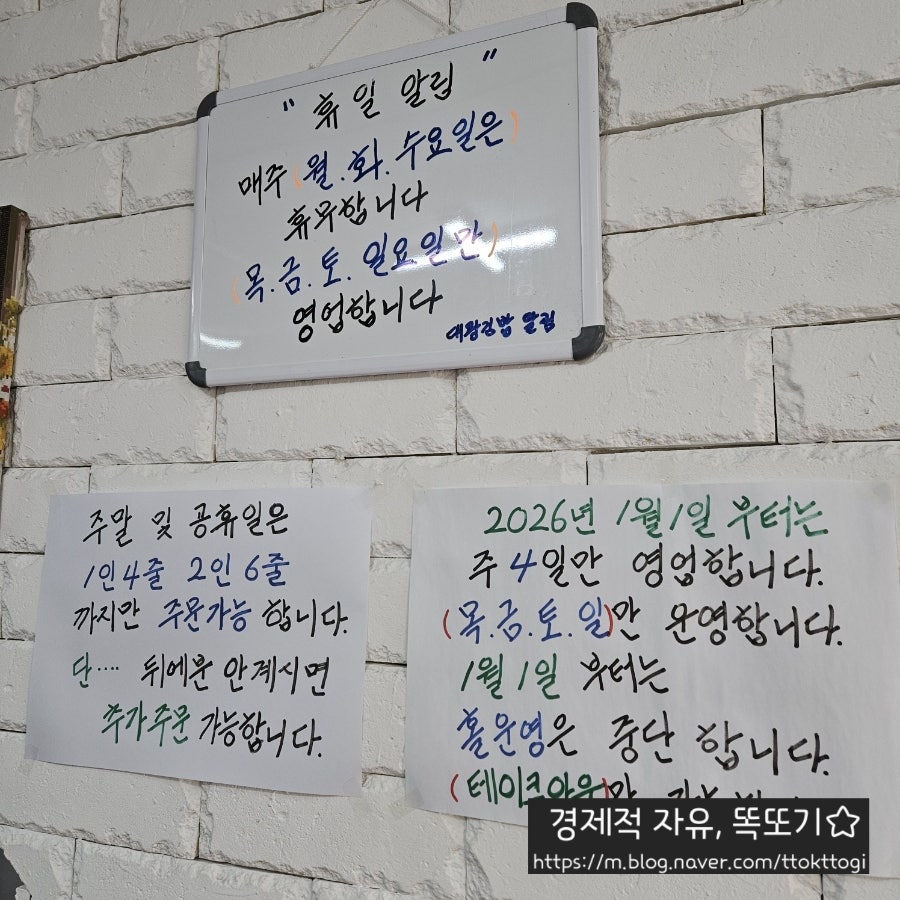 " 휴 일 알림 "
매주 (월.화.수요일은)
휴무합니다
(목.금.토.일요일만)
영업합니다
대왕김밥 알림
주말 및 공휴일은
1인4줄 2인 6줄
까지만 주문가능 합니다.
단···· 뒤에분 안계시면
추가주문 가능합니다.
2026년 1월1일 부터는
주 4일만 영업합니다.
(목.금.토.일)만 운영합니다.
1월 1일 부터는
홀운영은 중단 합니다.
(테이크아웃)만
경제적 자유, 똑또기☆
https://m.blog.naver.com/ttokttogi